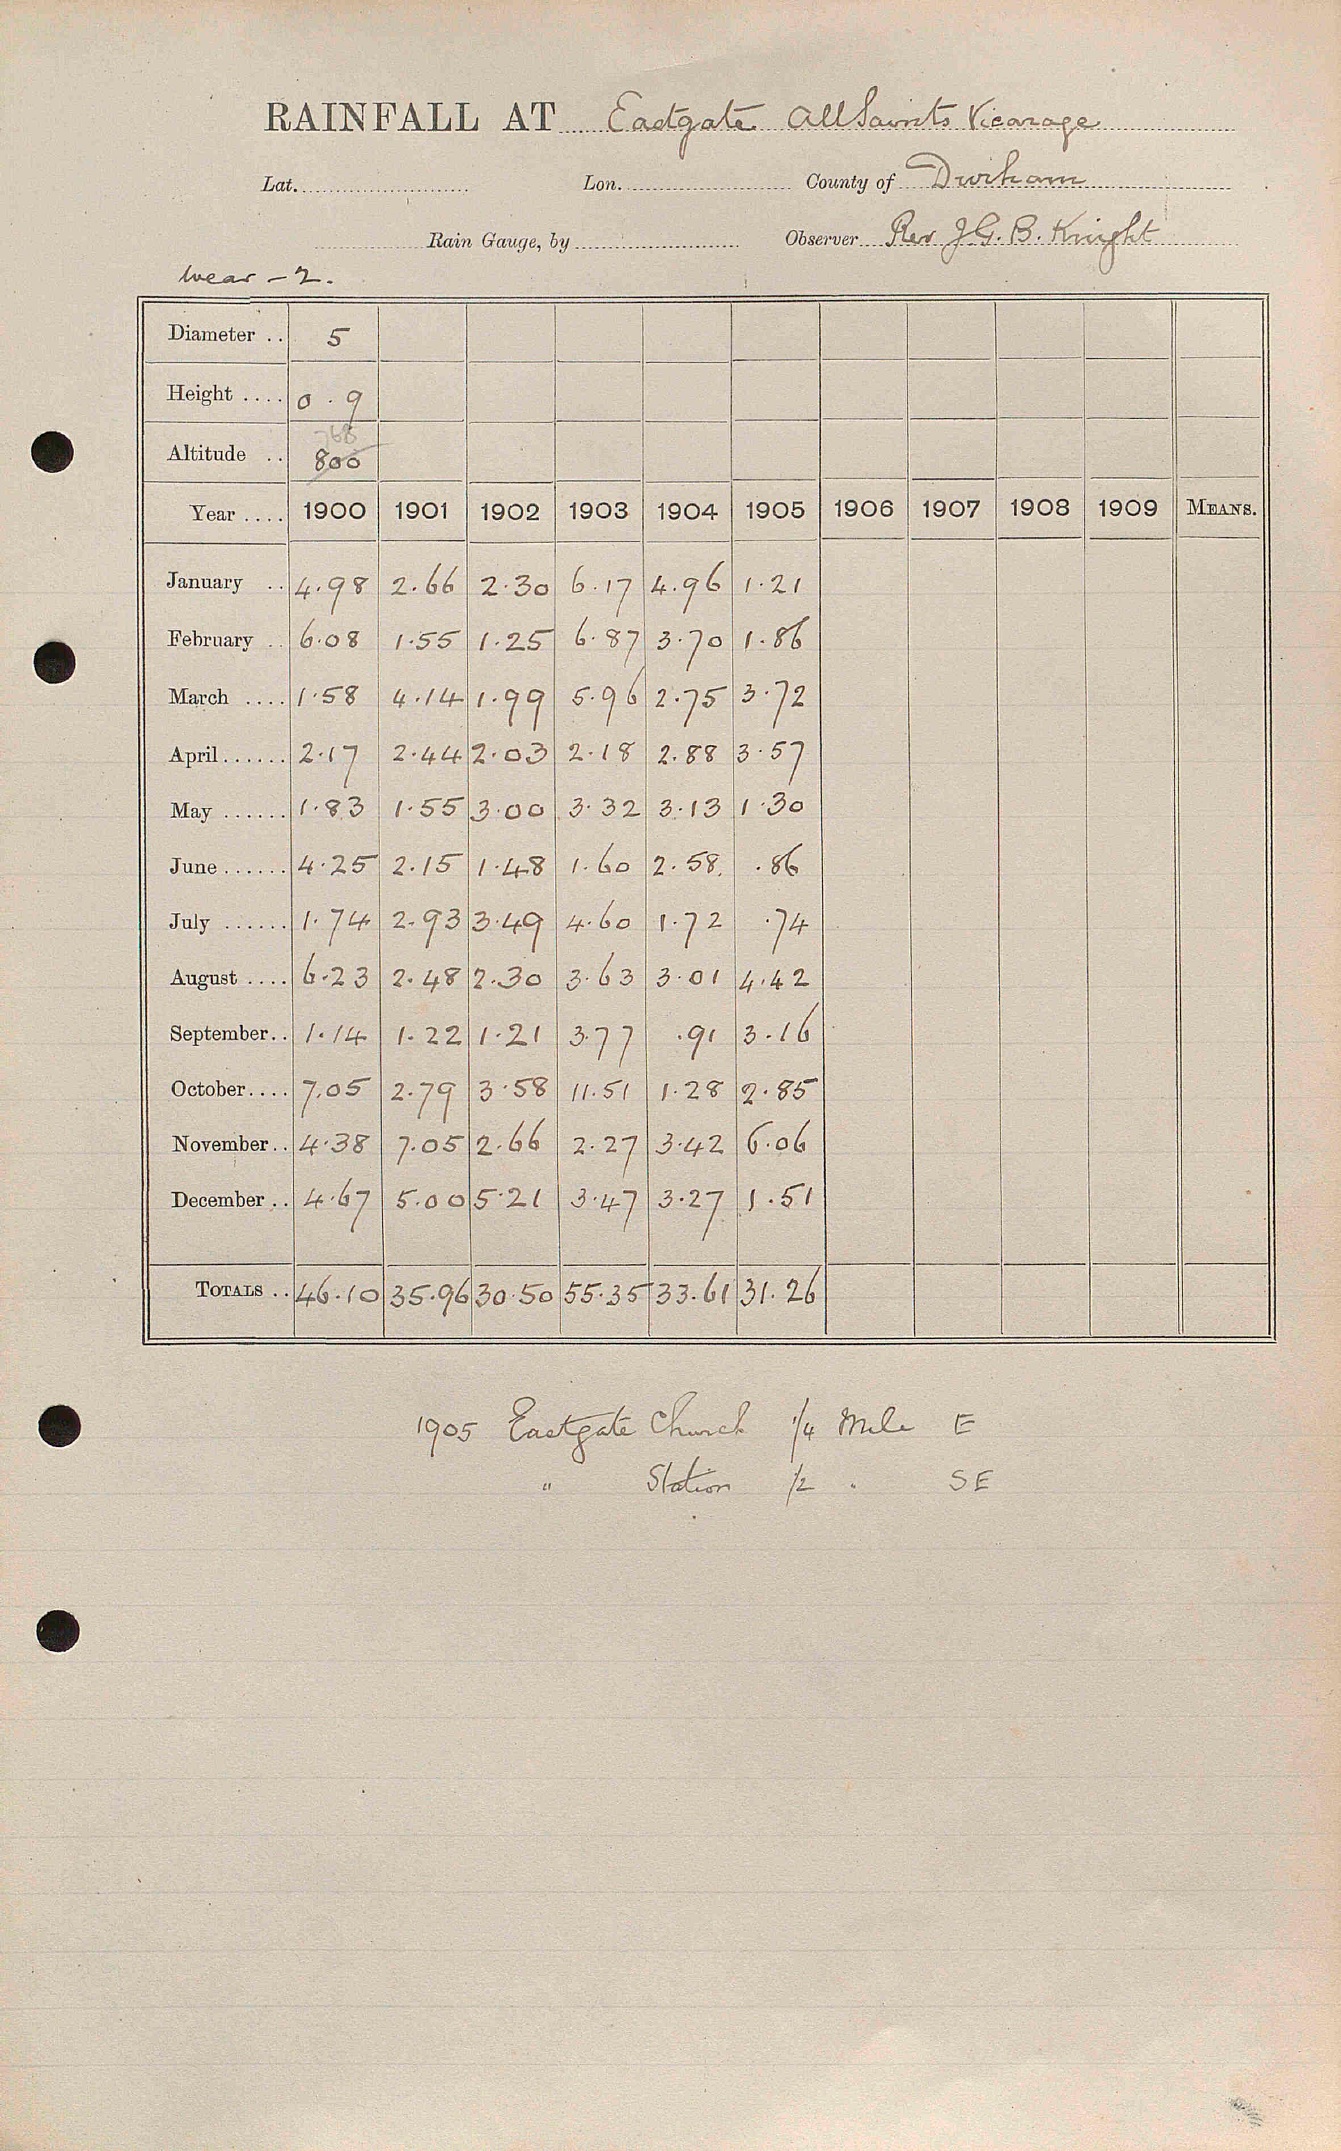 RAINFALL AT Eastgate All Saints Vicarage
Lat. Lon. County of Durham
Rain Gauge, by Observer Rev J.G.B. Knight
Wear - 2.
Diameter .. 5
Height .... 0 . 9
768
Altitude .. 800
Year .... 1900 1901 1902 1903 1904 1905 1906 1907 1908 1909 MEANS.
January .. 4.98 2.66 2.30 6.17 4.96 1.21
February .. 6.08 1.55 1.25 6.87 3.70 1.86
March .... 1.58 4.14 1.99 5.96 2.75 3.72
April...... 2.17 2.44 2.03 2.18 2.88 3.57
May ...... 1.83 1.55 3.00 3.32 3.13 1.30
June...... 4.25 2.15 1.48 1.60 2.58 .86
July ...... 1.74 2.93 3.49 4.60 1.72 .74
August .... 6.23 2.48 2.30 3.63 3.01 4.42
September.. 1.14 1.22 1.21 3.77 .91 3.16
October.... 7.05 2.79 3.58 11.51 1.28 2.85
November.. 4.38 7.05 2.66 2.27 3.42 6.06
December .. 4.67 5.00 5.21 3.47 3.27 1.51
TOTALS .. 46.10 35.96 30.50 55.35 33.61 31.26
1905 Eastgate Church 1/4 Mile E
" Station 1/2 " SE